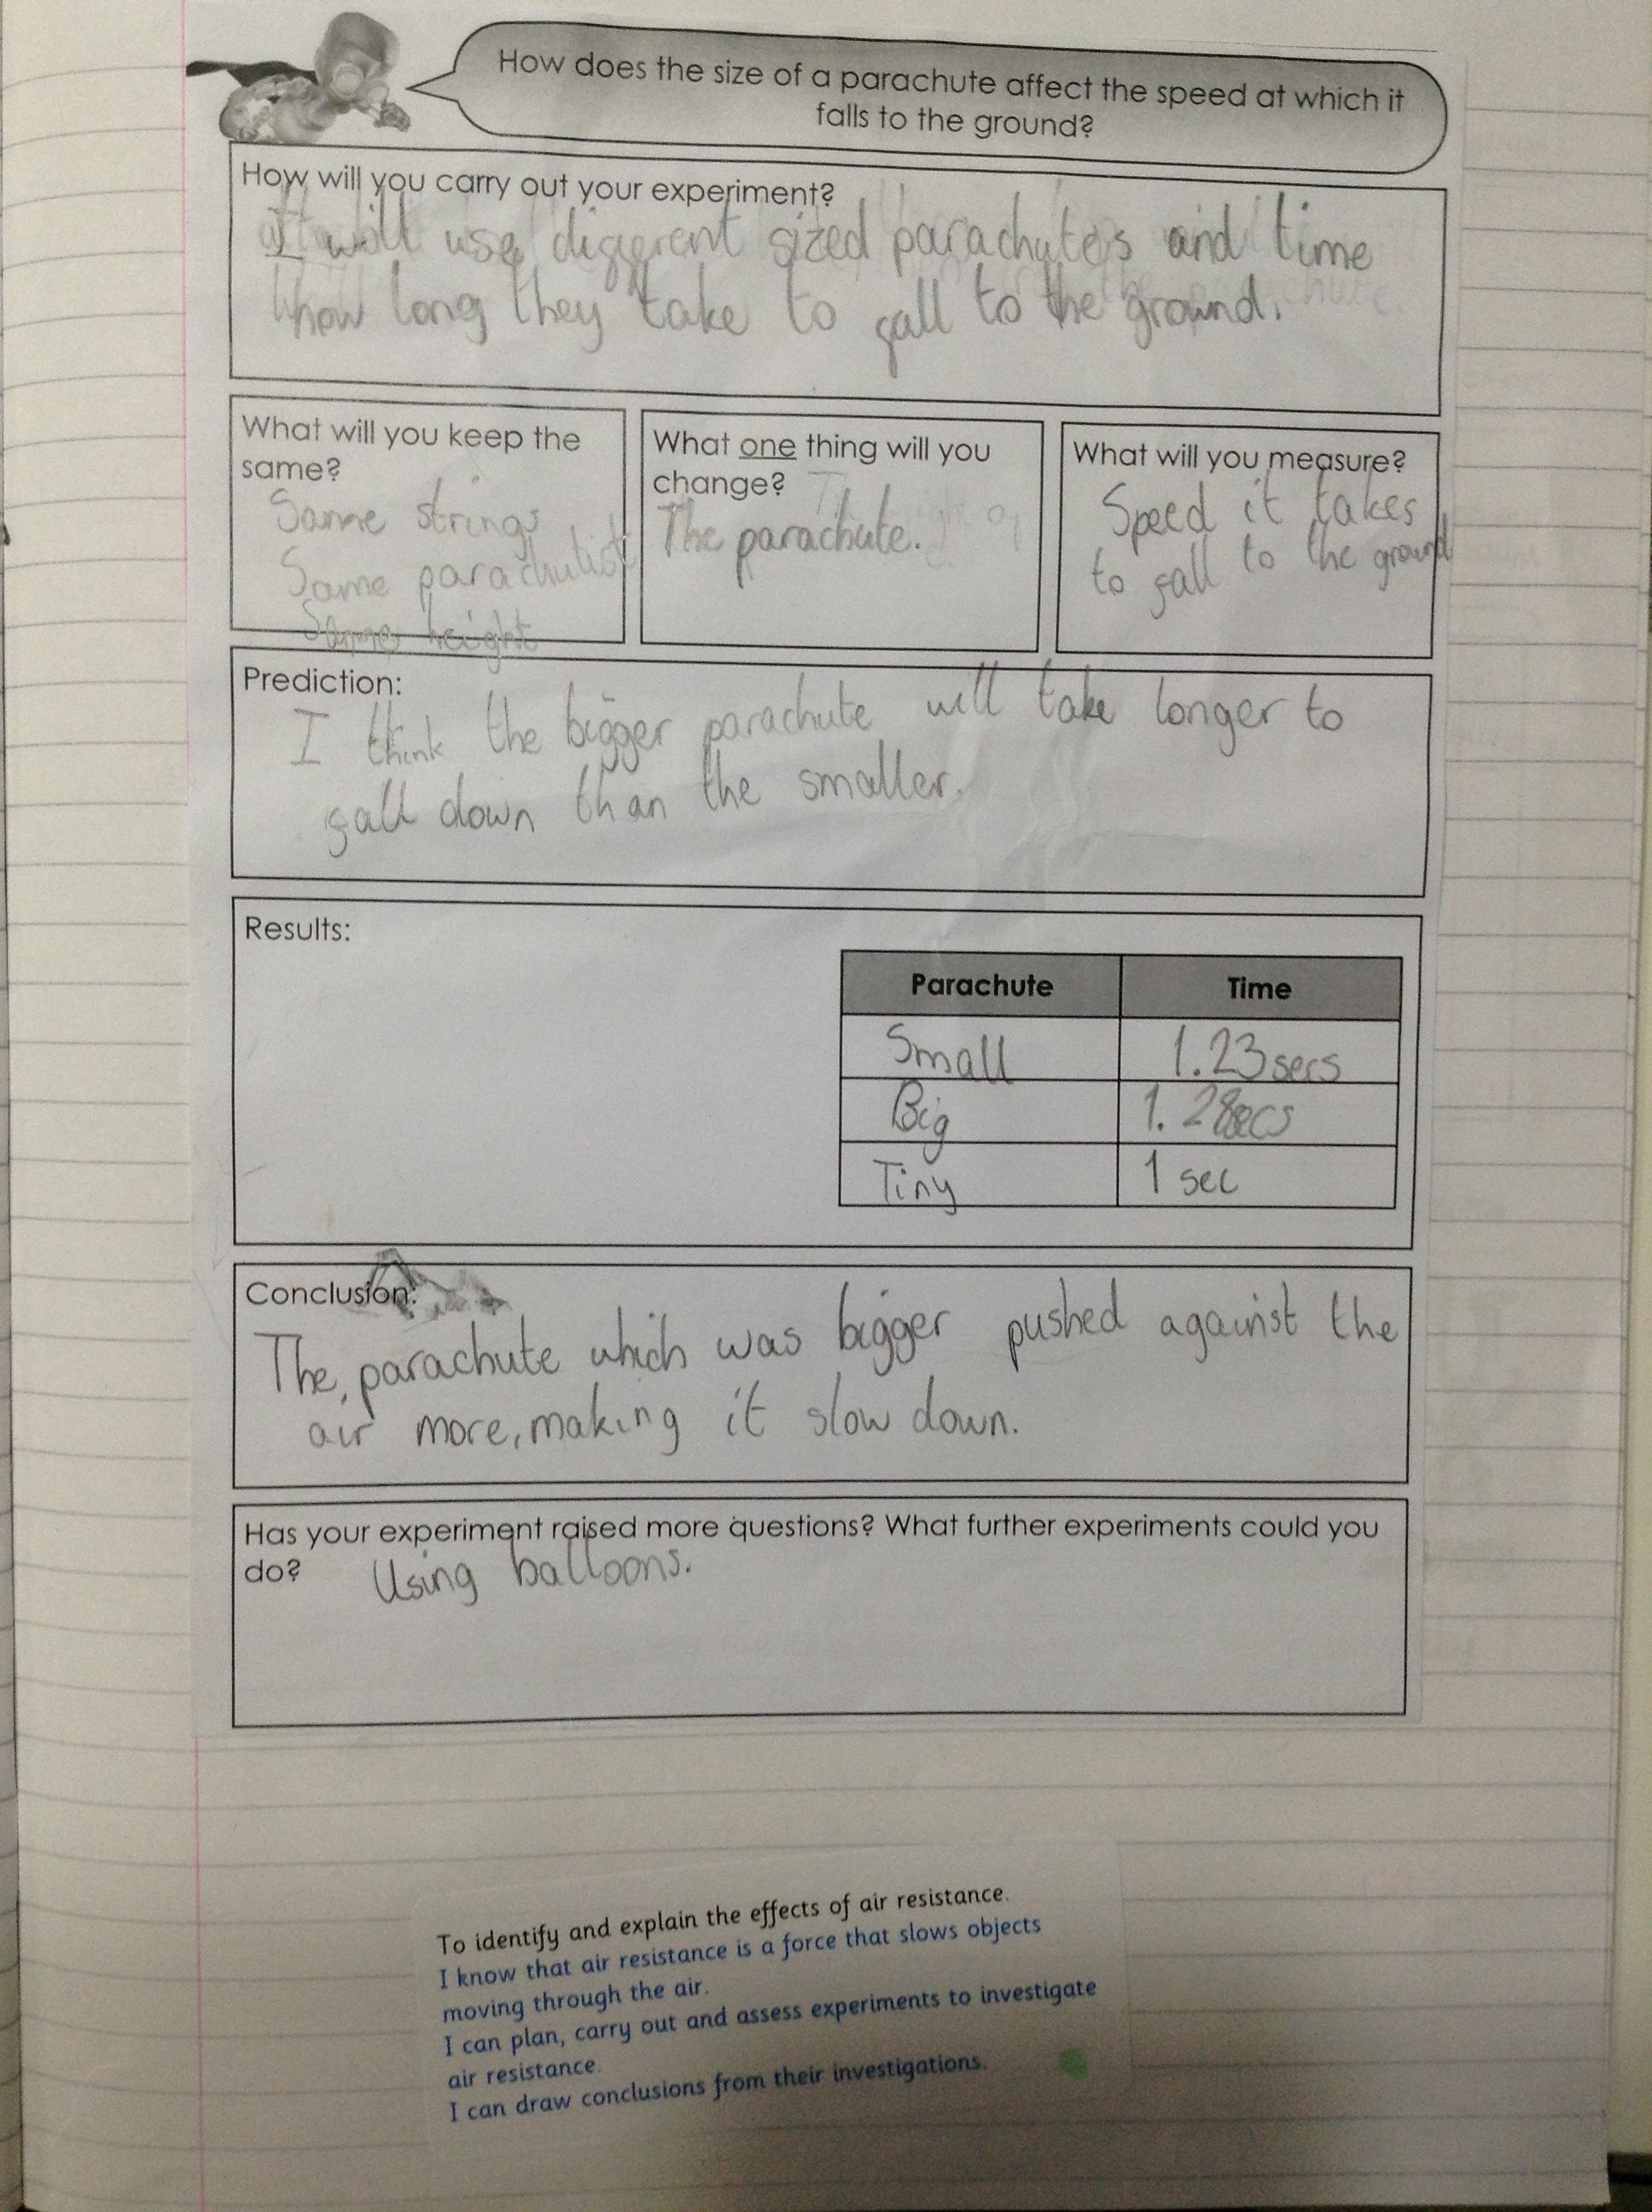 How does the size of a parachute affect the speed at which it
falls to the ground?
How will you carry out your experiment?
I will use different sized parachutes and time
how long they take to fall to the ground.
What will you keep the
same?
Same strings
Same parachutist
Same height
What one thing will you
change?
The parachute.
What will you measure?
Speed it takes
to fall to the ground
Prediction:
I think the bigger parachute will take longer to
fall down than the smaller.
Results:
Parachute Time
Small 1.23secs
Big 1.28secs
Tiny 1 sec
Conclusion:
The parachute which was bigger pushed against the
air more, making it slow down.
Has your experiment raised more questions? What further experiments could you
do? Using balloons.
To identify and explain the effects of air resistance.
I know that air resistance is a force that slows objects
moving through the air.
I can plan, carry out and assess experiments to investigate
air resistance.
I can draw conclusions from their investigations.